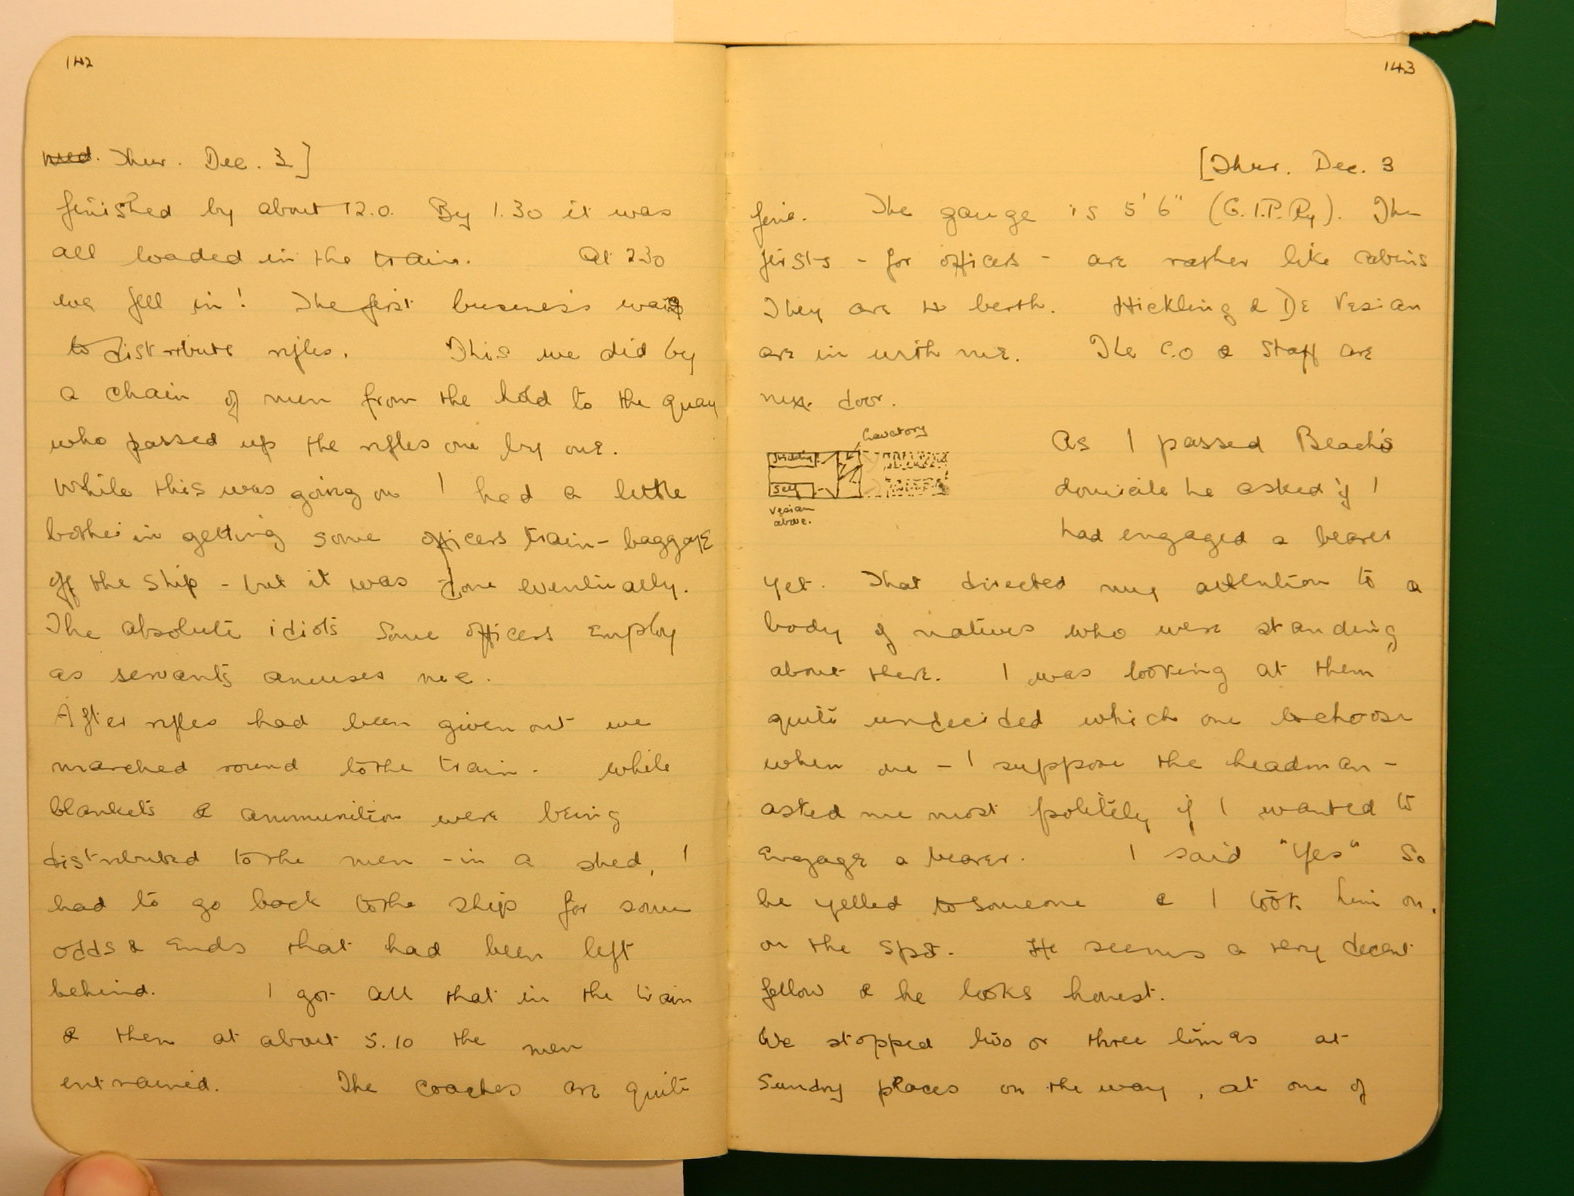 142
Wed. Thur. Dec. 3]
finished by about 12.0. By 1.30 it was
all loaded in the train. At 2.30
we fell in! The first business was
to distribute rifles. This we did by
a chain of men from the hold to the quay
who passed up the rifles one by one.
While this was going on I had a little
bother in getting some officers train-baggage
off the ship - but it was done eventually.
The absolute idiots some officers employ
as servants amuses me.
After rifles had been given out we
marched round to the train. While
blankets & ammunition were being
distributed to the men - in a shed, I
had to go back to the ship for some
odds & ends that had been left
behind. I got all that in the train
& then at about 5.10 the men
entrained. The coaches are quite
143
[Thur. Dec. 3
fine. The gauge is 5'6" (G.I.P.Ry). The
firsts - for officers - are rather like cabins
They are 4 berth. Hickling & De Vesian
are in with me. The C.O & Staff are
next door.
Lavatory
Hickling
Self
Vesian
above.
As I passed Beach's
domicile he asked if I
had engaged a bearer
yet. That directed my attention to a
body of natives who were standing
about there. I was looking at them
quite undecided which one to choose
when one - I suppose the headman -
asked me most politely if I wanted to
engage a bearer. I said "Yes" So
he yelled to someone & I took him on.
on the spot. He seems a very decent
fellow & he looks honest.
We stopped two or three times at
sundry places on the way, at one of